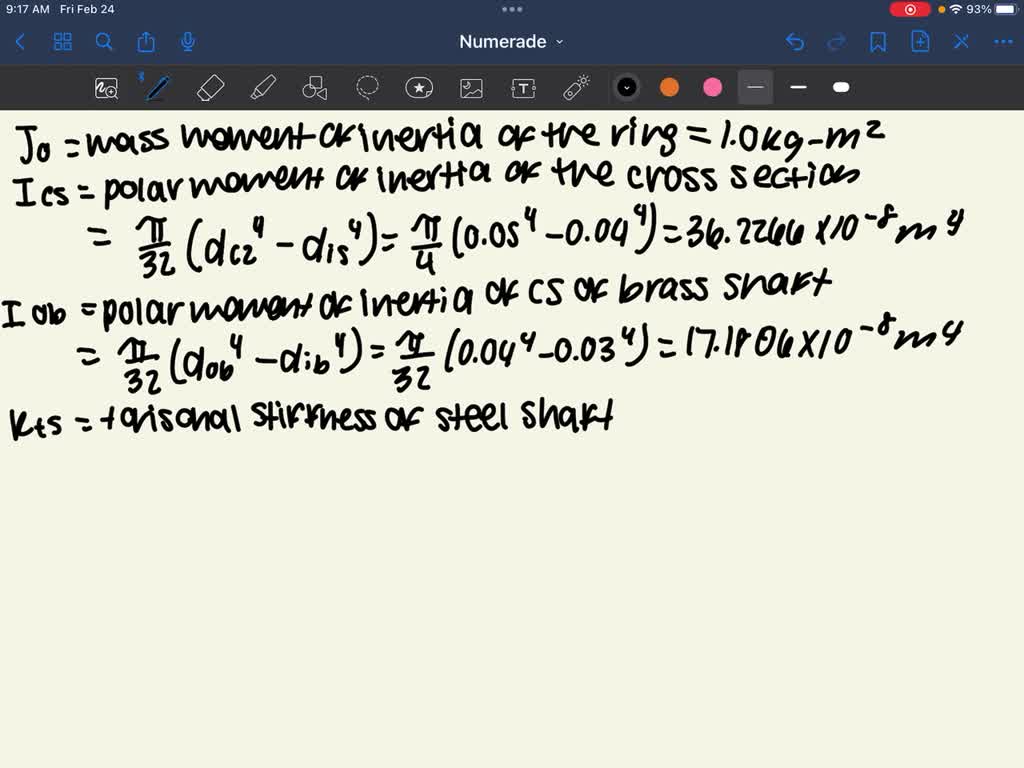 9:17 AM Fri Feb 24
93%
Numerade
J₀ = mass moment of inertia of the ring = 1.0 kg-m²
Ics = polar moment of inertia of the cross section
= π/32 (dc2⁴ - dis⁴) = π/4 (0.05⁴ - 0.04⁴) = 36.2266 × 10⁻⁸ m⁴
Iob = polar moment of inertia of cs of brass shaft
= π/32 (dob⁴ - dib⁴) = π/32 (0.04⁴ - 0.03⁴) = 17.1806 × 10⁻⁸ m⁴
Kts = torisonal stiffness of steel shaft